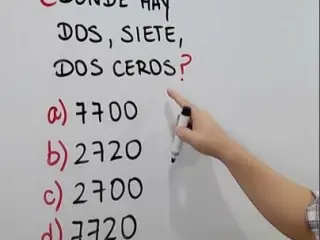 ¿DÓNDE HAY
DOS, SIETE,
DOS CEROS?
a) 7700
b) 2720
c) 2700
d) 7720